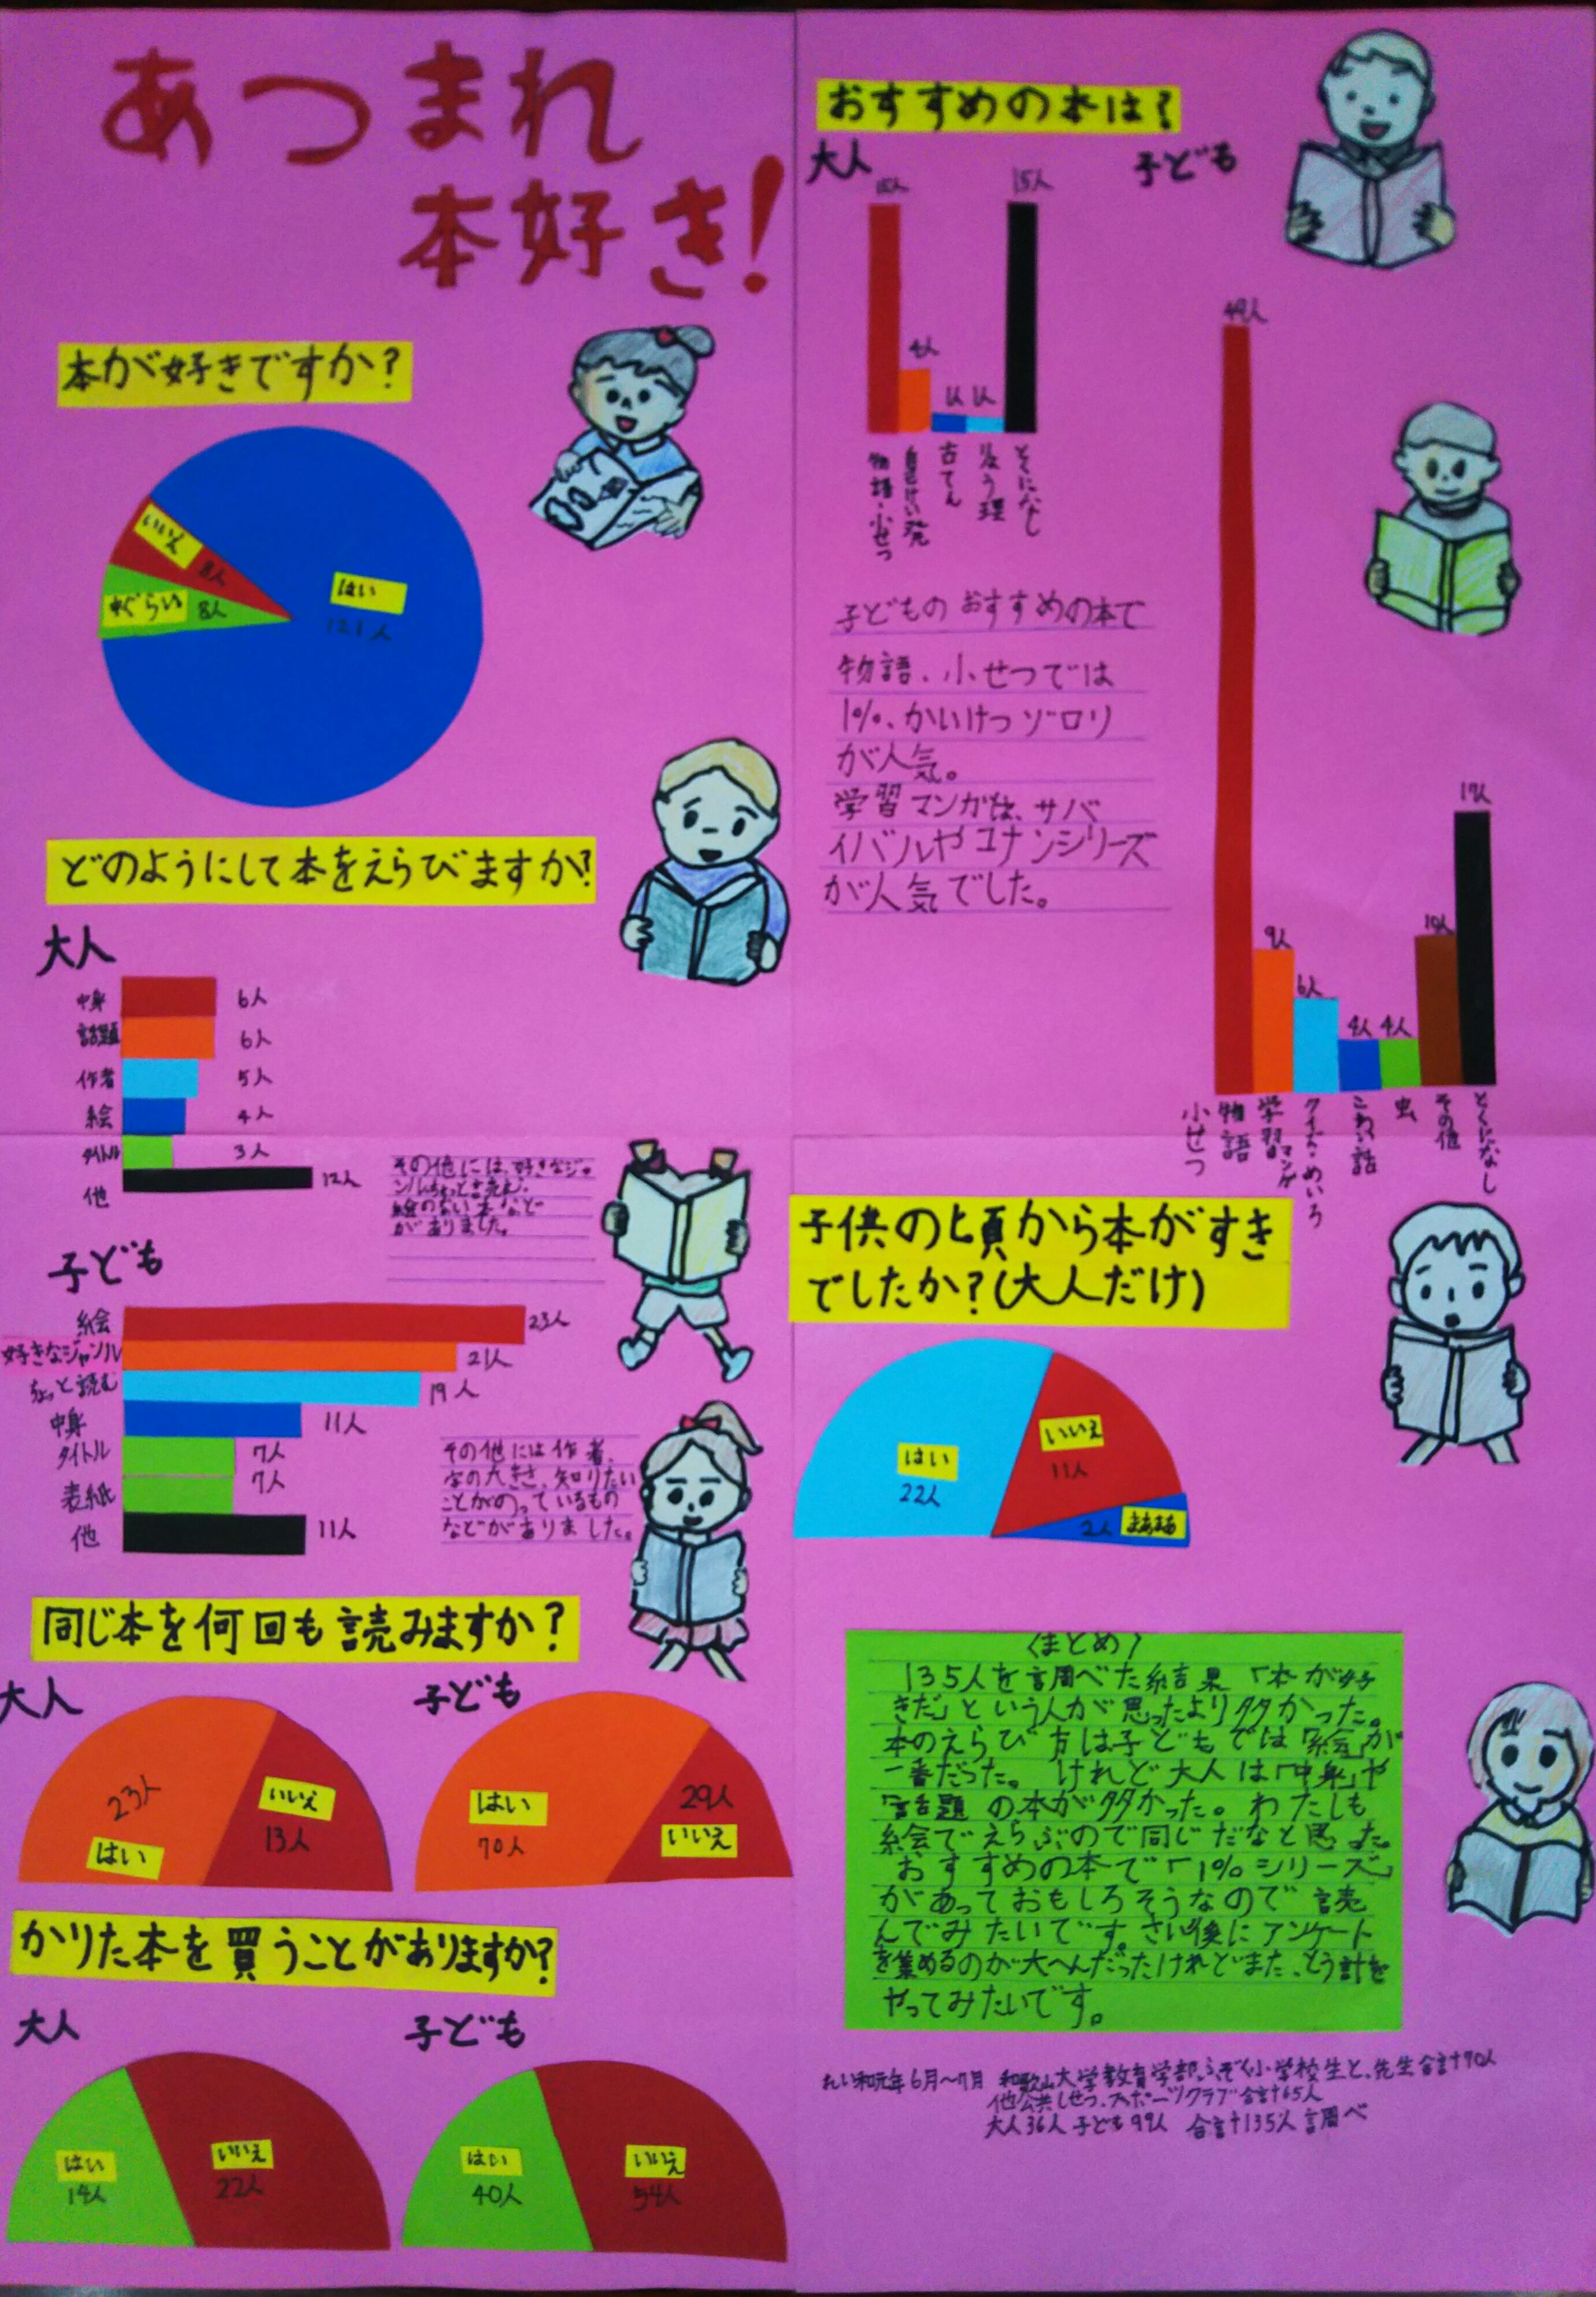 あつまれ
本好き!
本が好きですか?
いいえ
8人
中ぐらい
8人
はい
121人
どのようにして本をえらびますか?
大人
中身 6人
話題 6人
作者 5人
絵 4人
タイトル 3人
他 12人
その他には、好きなジャ
ンル、ちょっと読む、
絵のない本など
がありました。
子ども
絵 23人
好きなジャンル 21人
ちょっと読む 19人
中身 11人
タイトル 7人
表紙 7人
他 11人
その他には作者、
字の大きさ、知りたい
ことがのっているもの
などがありました。
同じ本を何回も読みますか?
大人
23人
はい
いいえ
13人
子ども
はい
70人
29人
いいえ
かりた本を買うことがありますか?
大人
はい
14人
いいえ
22人
子ども
はい
40人
いいえ
54人
おすすめの本は?
大人
15人
4人
1人
1人
15人
物語・小せつ
自己けい発
古てん
りょう理
とくになし
子どものおすすめの本で
物語、小せつでは
1%、かいけつゾロリ
が人気。
学習マンガは、サバ
イバルやコナンシリーズ
が人気でした。
子ども
49人
9人
6人
4人
4人
10人
17人
物語
小せつ
学習マンガ
クイズ・めいろ
こわい話
虫
その他
とくになし
子供の頃から本がすき
でしたか?(大人だけ)
はい
22人
いいえ
11人
2人
まあまあ
〈まとめ〉
135人を調べた結果「本が好
きだ」という人が思ったより多かった。
本のえらび方は子どもでは「絵」が
一番だった。けれど大人は「中身」や
「話題」の本が多かった。わたしも
絵でえらぶので同じだなと思った。
おすすめの本で「1%シリーズ」
があっておもしろそうなので読
んでみたいです。さい後にアンケート
を集めるのが大へんだったけれどまた、とう計を
やってみたいです。
れい和元年6月〜7月 和歌山大学教育学部ふぞく小学校生と、先生合計70人
他公共しせつ、スポーツクラブ合計65人
大人36人 子ども99人 合計135人調べ